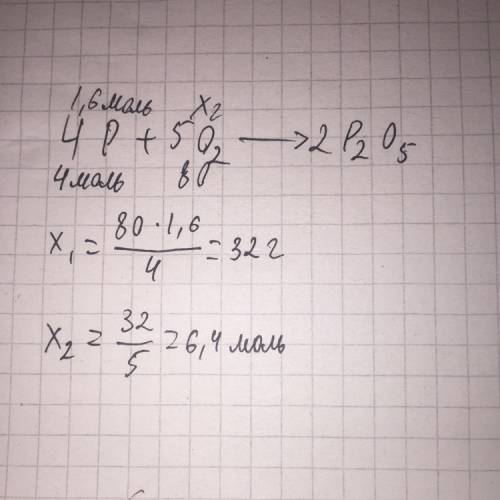 1,6 моль x₂
4P + 5O₂ → 2P₂O₅
4 моль 80
x₁ = 80 · 1,6 / 4 = 32 г
x₂ = 32 / 5 = 6,4 моль